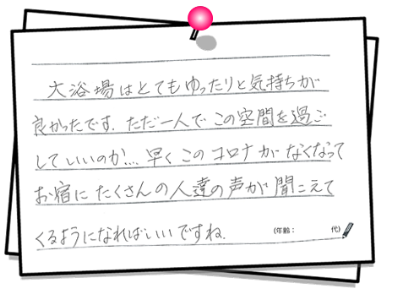 大浴場はとてもゆったりと気持ちが
良かったです。ただ一人でこの空間を過ご
していいのか…早くこのコロナがなくなって
お宿にたくさんの人達の声が聞こえて
くるようになればいいですね。
(年齢： 代)